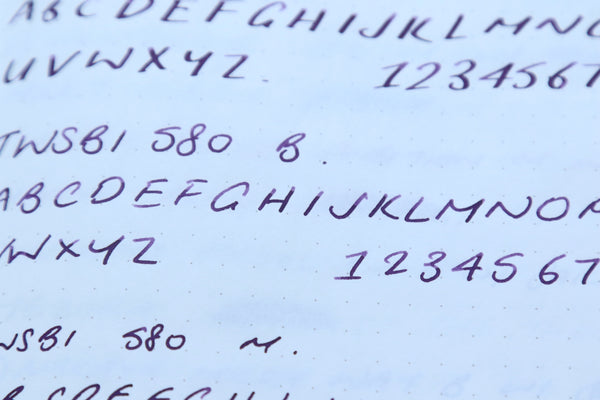 ABCDEFGHIJKLMNO
UVWXYZ. 1234567
TWSBI 580 B.
ABCDEFGHIJKLMNO
VWXYZ 1234567
WSBI 580 M.
BCDEFGHI